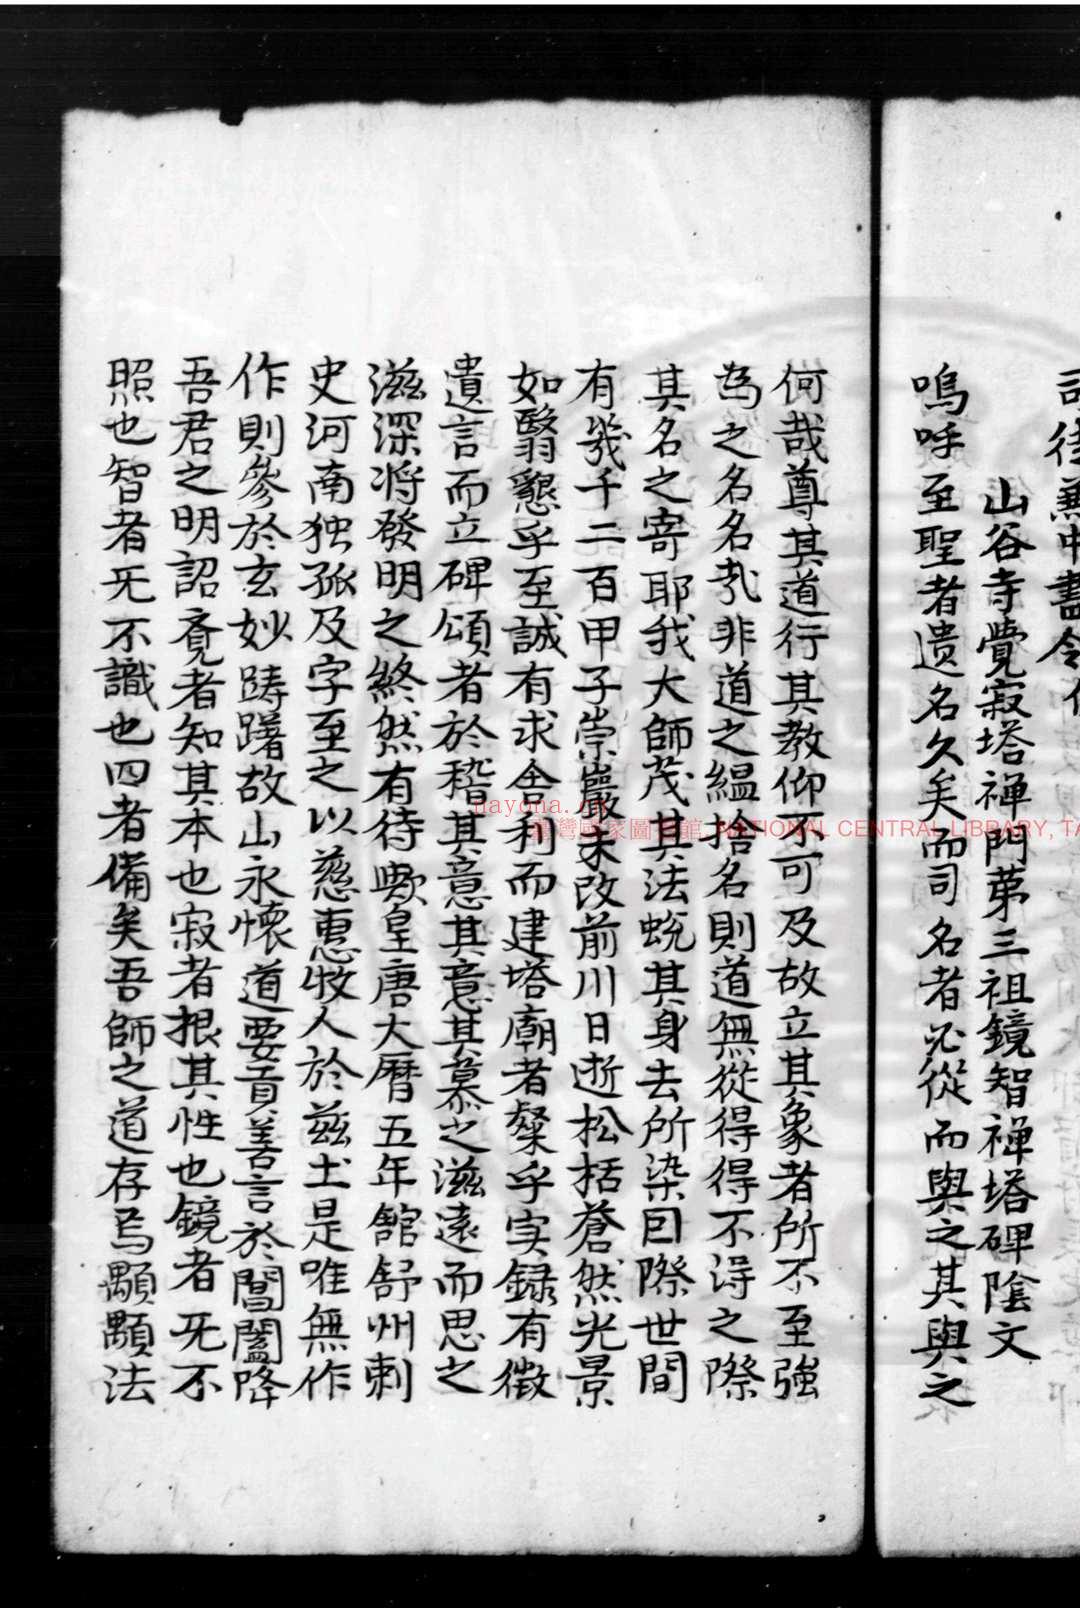 山谷寺覺寂塔禅門苐三祖鏡智禅塔碑隂文
嗚呼至聖者遗名久矣而司名者必從而與之其與之
何哉尊其道行其教仰不可及故立其象者所不至強
為之名名㦲非道之緼捨名則道無從得得不淂之際
其名之寄耶我大師茂其法蛻其身去所染囙際世間
有㡬千二百甲子崇巖未改前川日逝松栝蒼然光景
如翳懇乎至誠有求舍利而建塔廟者粲乎实録有徵
遺言而立碑頌者於稽其意其意其慕之滋遠而思之
滋深将發明之終然有待歟皇唐大曆五年舘舒州刺
史河南独孤及字至之以慈惠牧人於兹土是唯無作
作則參於玄妙踌躇故山永懷道要貢善言於閶闔降
吾君之明詔覔者知其本也寂者根其性也鏡者旡不
照也智者旡不識也四者備矣吾師之道存焉顒顒法